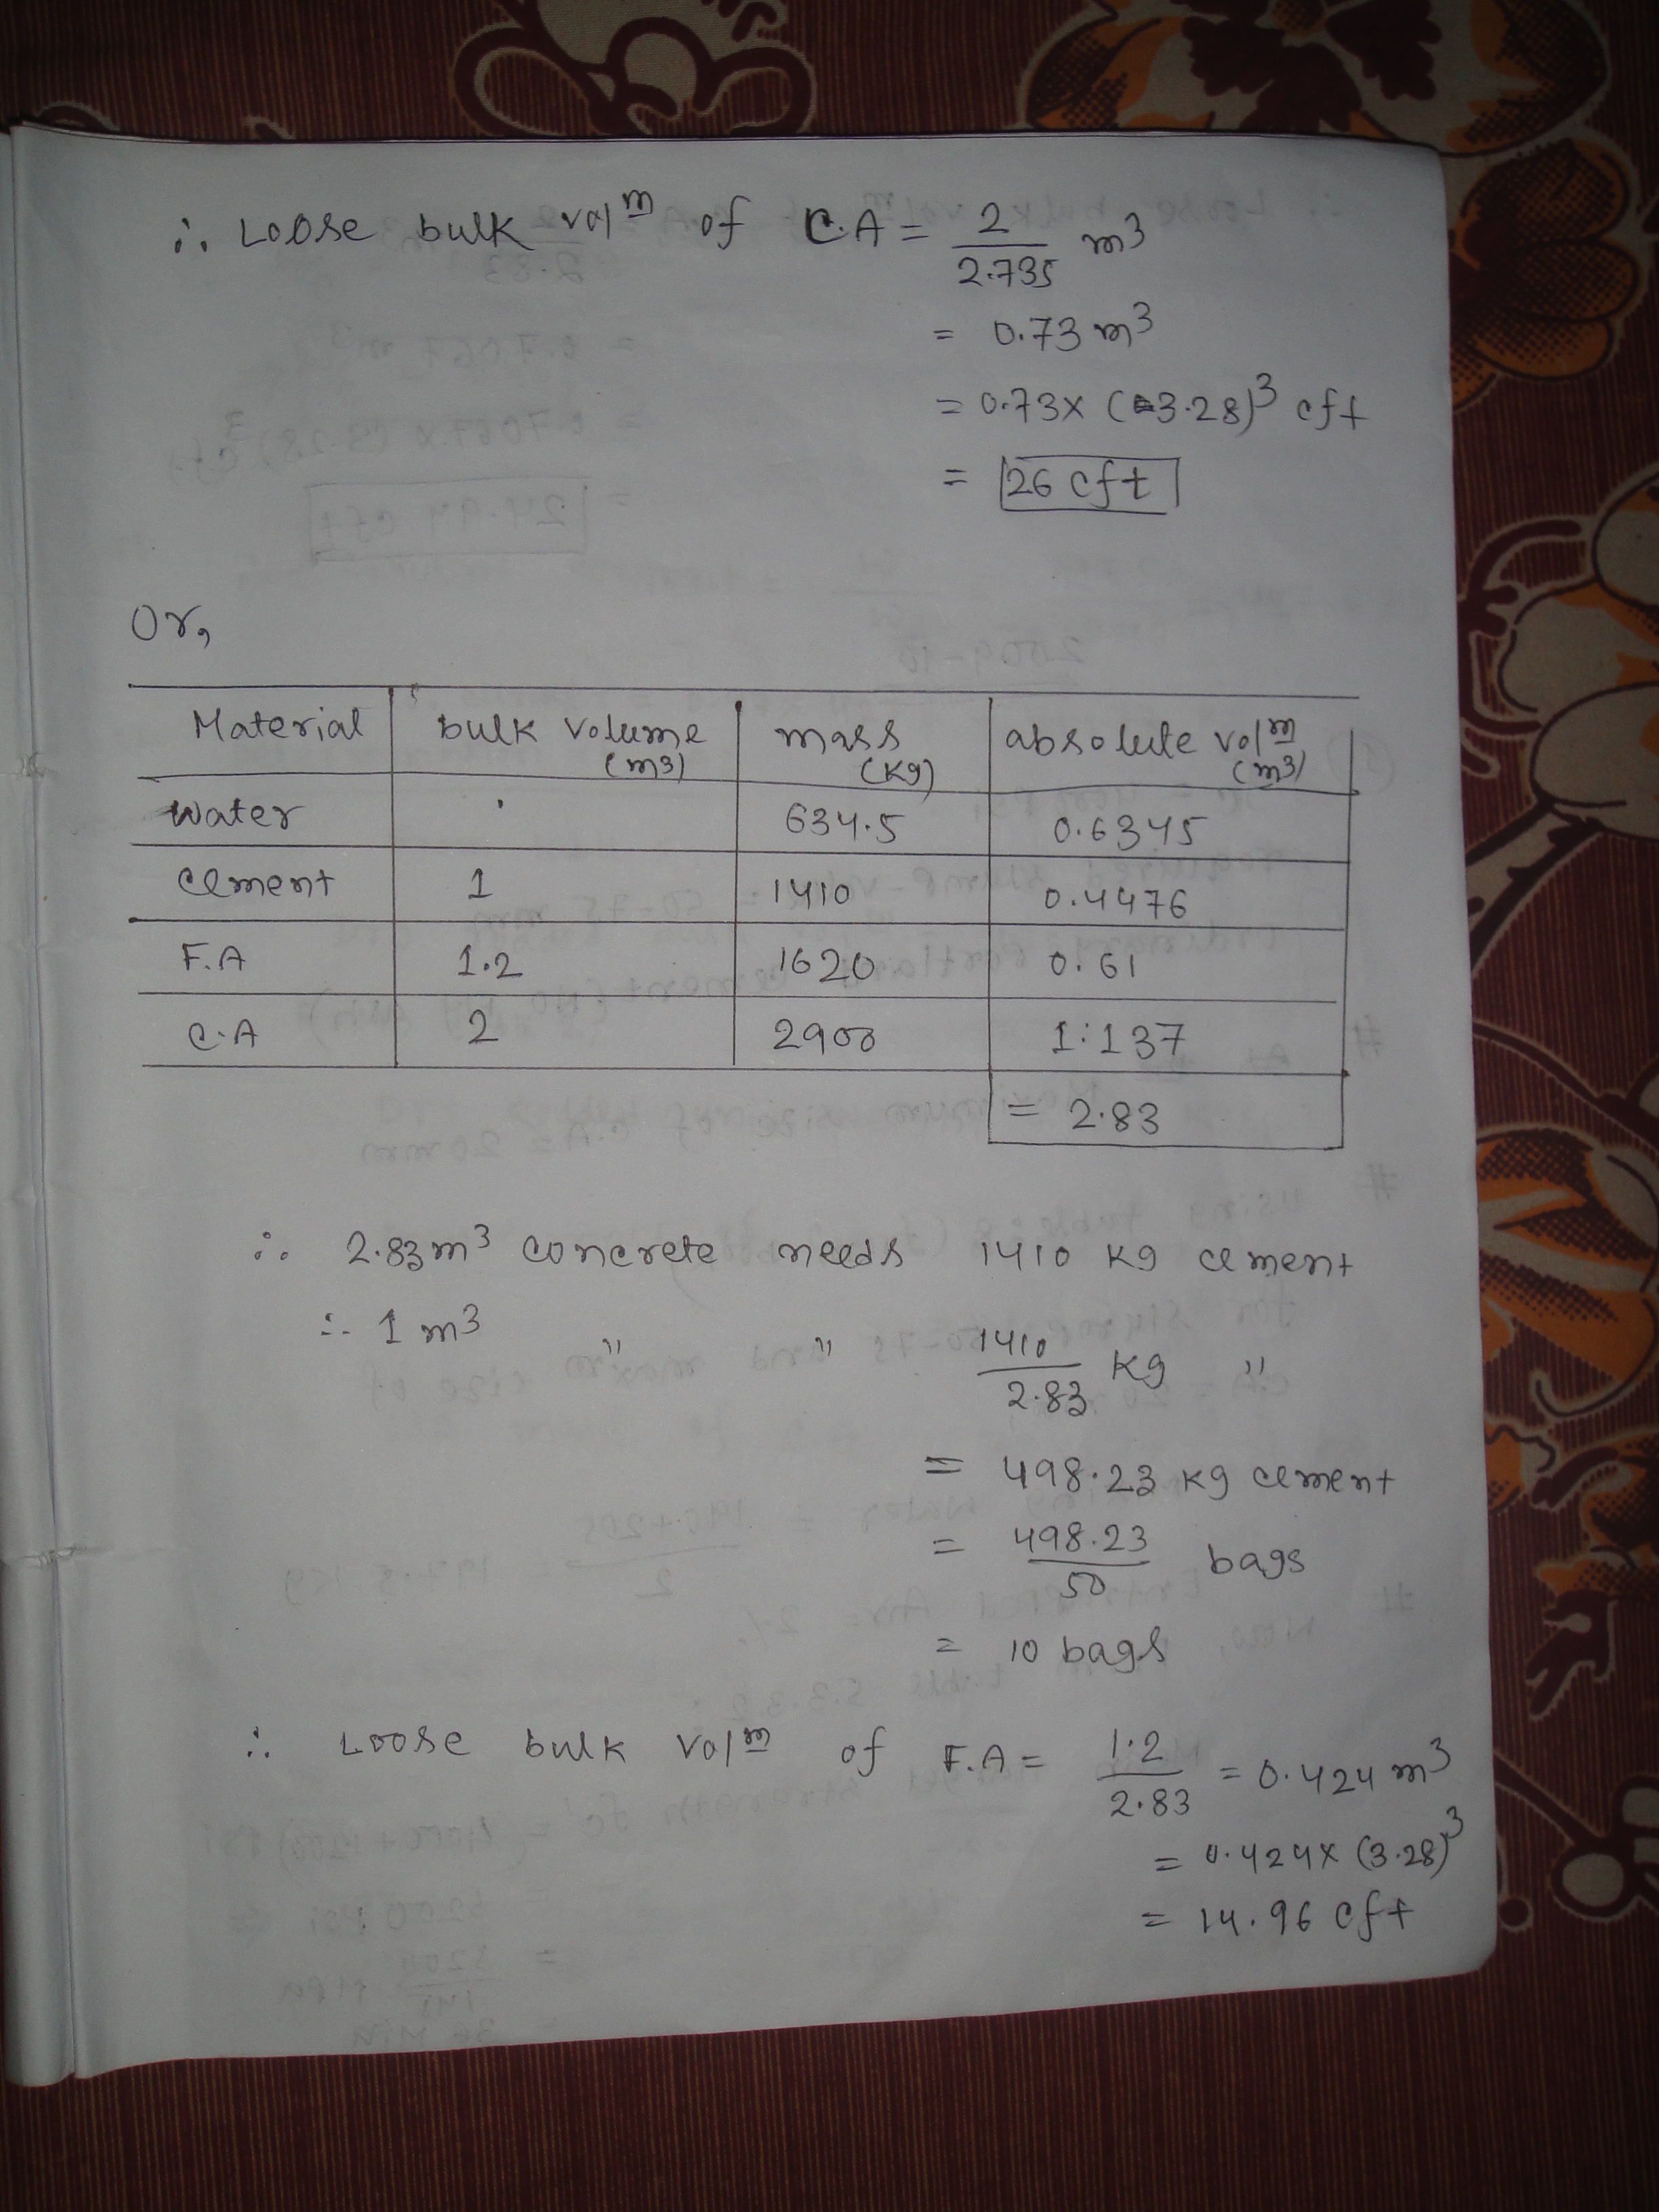 ∴ Loose bulk vol<sup>m</sup> of C.A = 2/2.735 m³
= 0.73 m³
= 0.73 x (3.28)³ cft
= 26 cft
Or,
Material | bulk volume (m3) | mass (Kg) | absolute vol<sup>m</sup> (m3)
Water | | 634.5 | 0.6345
Cement | 1 | 1410 | 0.4476
F.A | 1.2 | 1620 | 0.61
C.A | 2 | 2900 | 1.137
= 2.83
∴ 2.83 m³ concrete needs 1410 kg cement
∴ 1 m³ " " 1410/2.83 kg "
= 498.23 kg cement
= 498.23/50 bags
= 10 bags
∴ Loose bulk vol<sup>m</sup> of F.A = 1.2/2.83 = 0.424 m³
= 0.424 x (3.28)³
= 14.96 cft